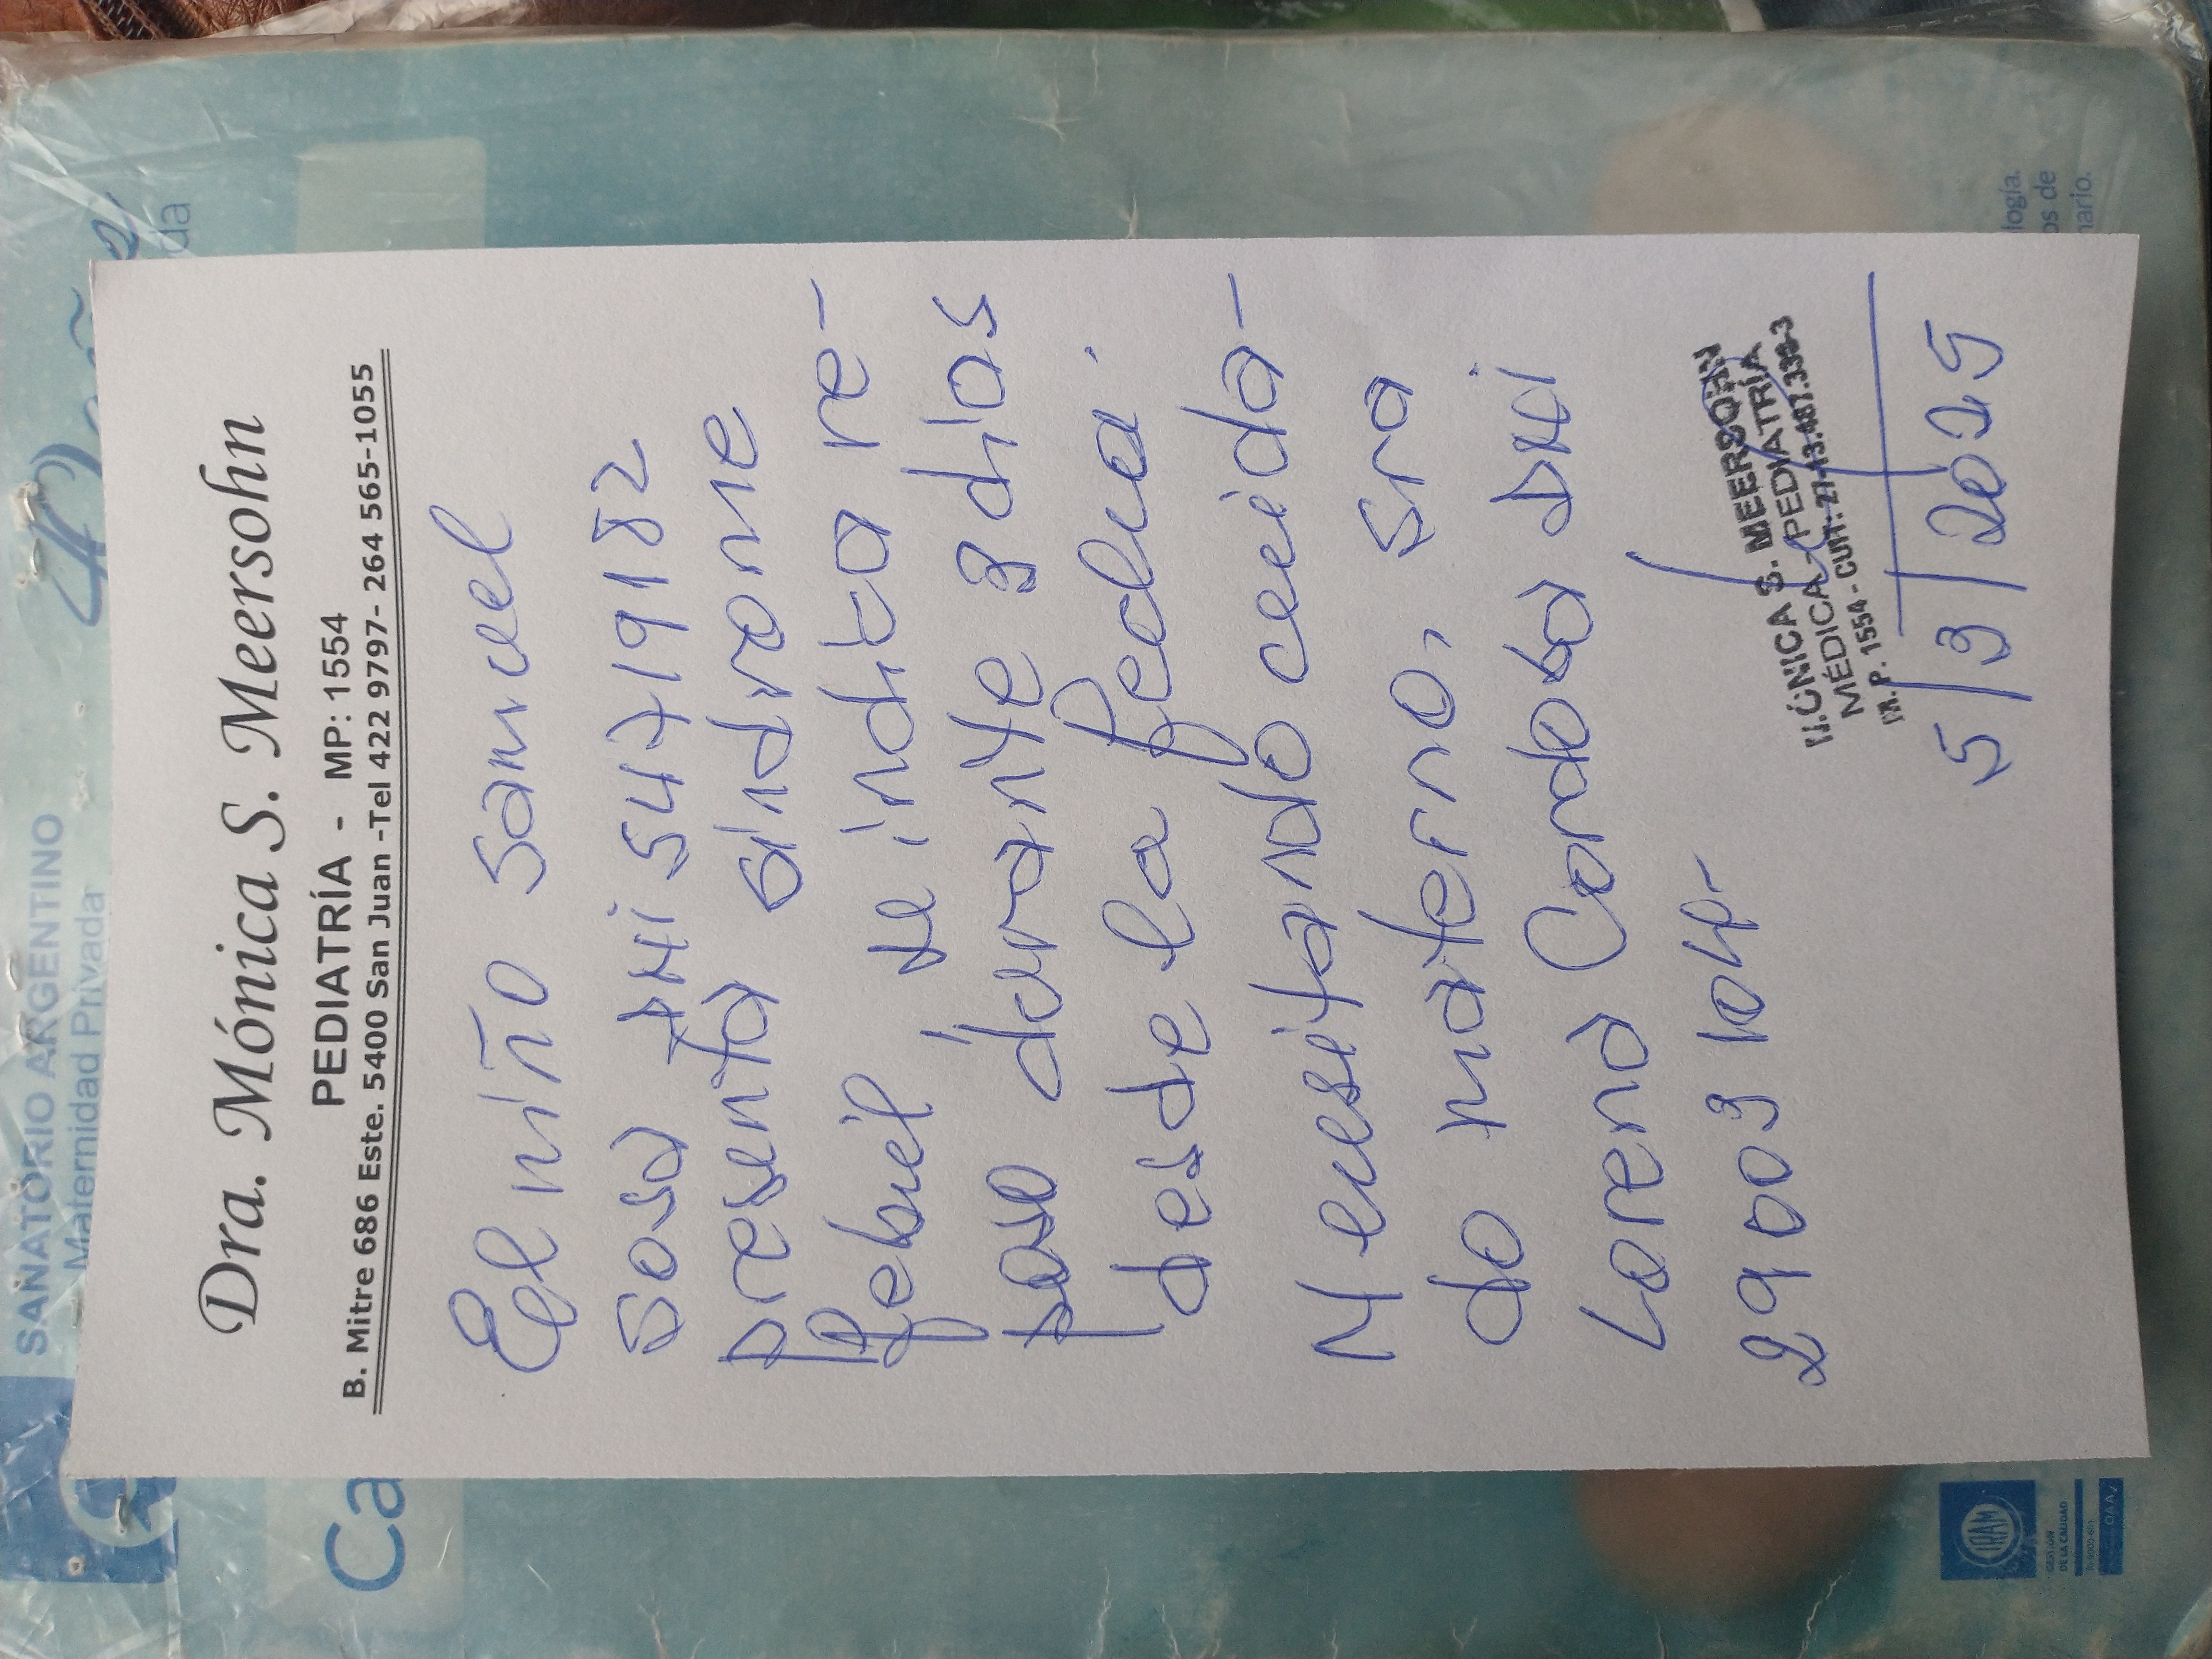 SANATORIO ARGENTINO
Maternidad Privada
da
Ca
Dra. Mónica S. Meersohn
PEDIATRÍA - MP: 1554
B. Mitre 686 Este. 5400 San Juan -Tel 422 9797- 264 565-1055
El niño Samuel
Sosa DNI 54719182
presenta síndrome
febril, se indica re-
poso durante 3 días
desde la fecha.
Necesitando cuida-
do materno, Sra
Lorena Cordoba DNI
29003104-
MÓNICA S. MEERSOHN
MÉDICA - PEDIATRÍA
M.P. 1554 - CUIT: 27-13.487.339-3
5/3/2025
logía.
os de
nario.
IRAM
GESTION
DE LA CALIDAD